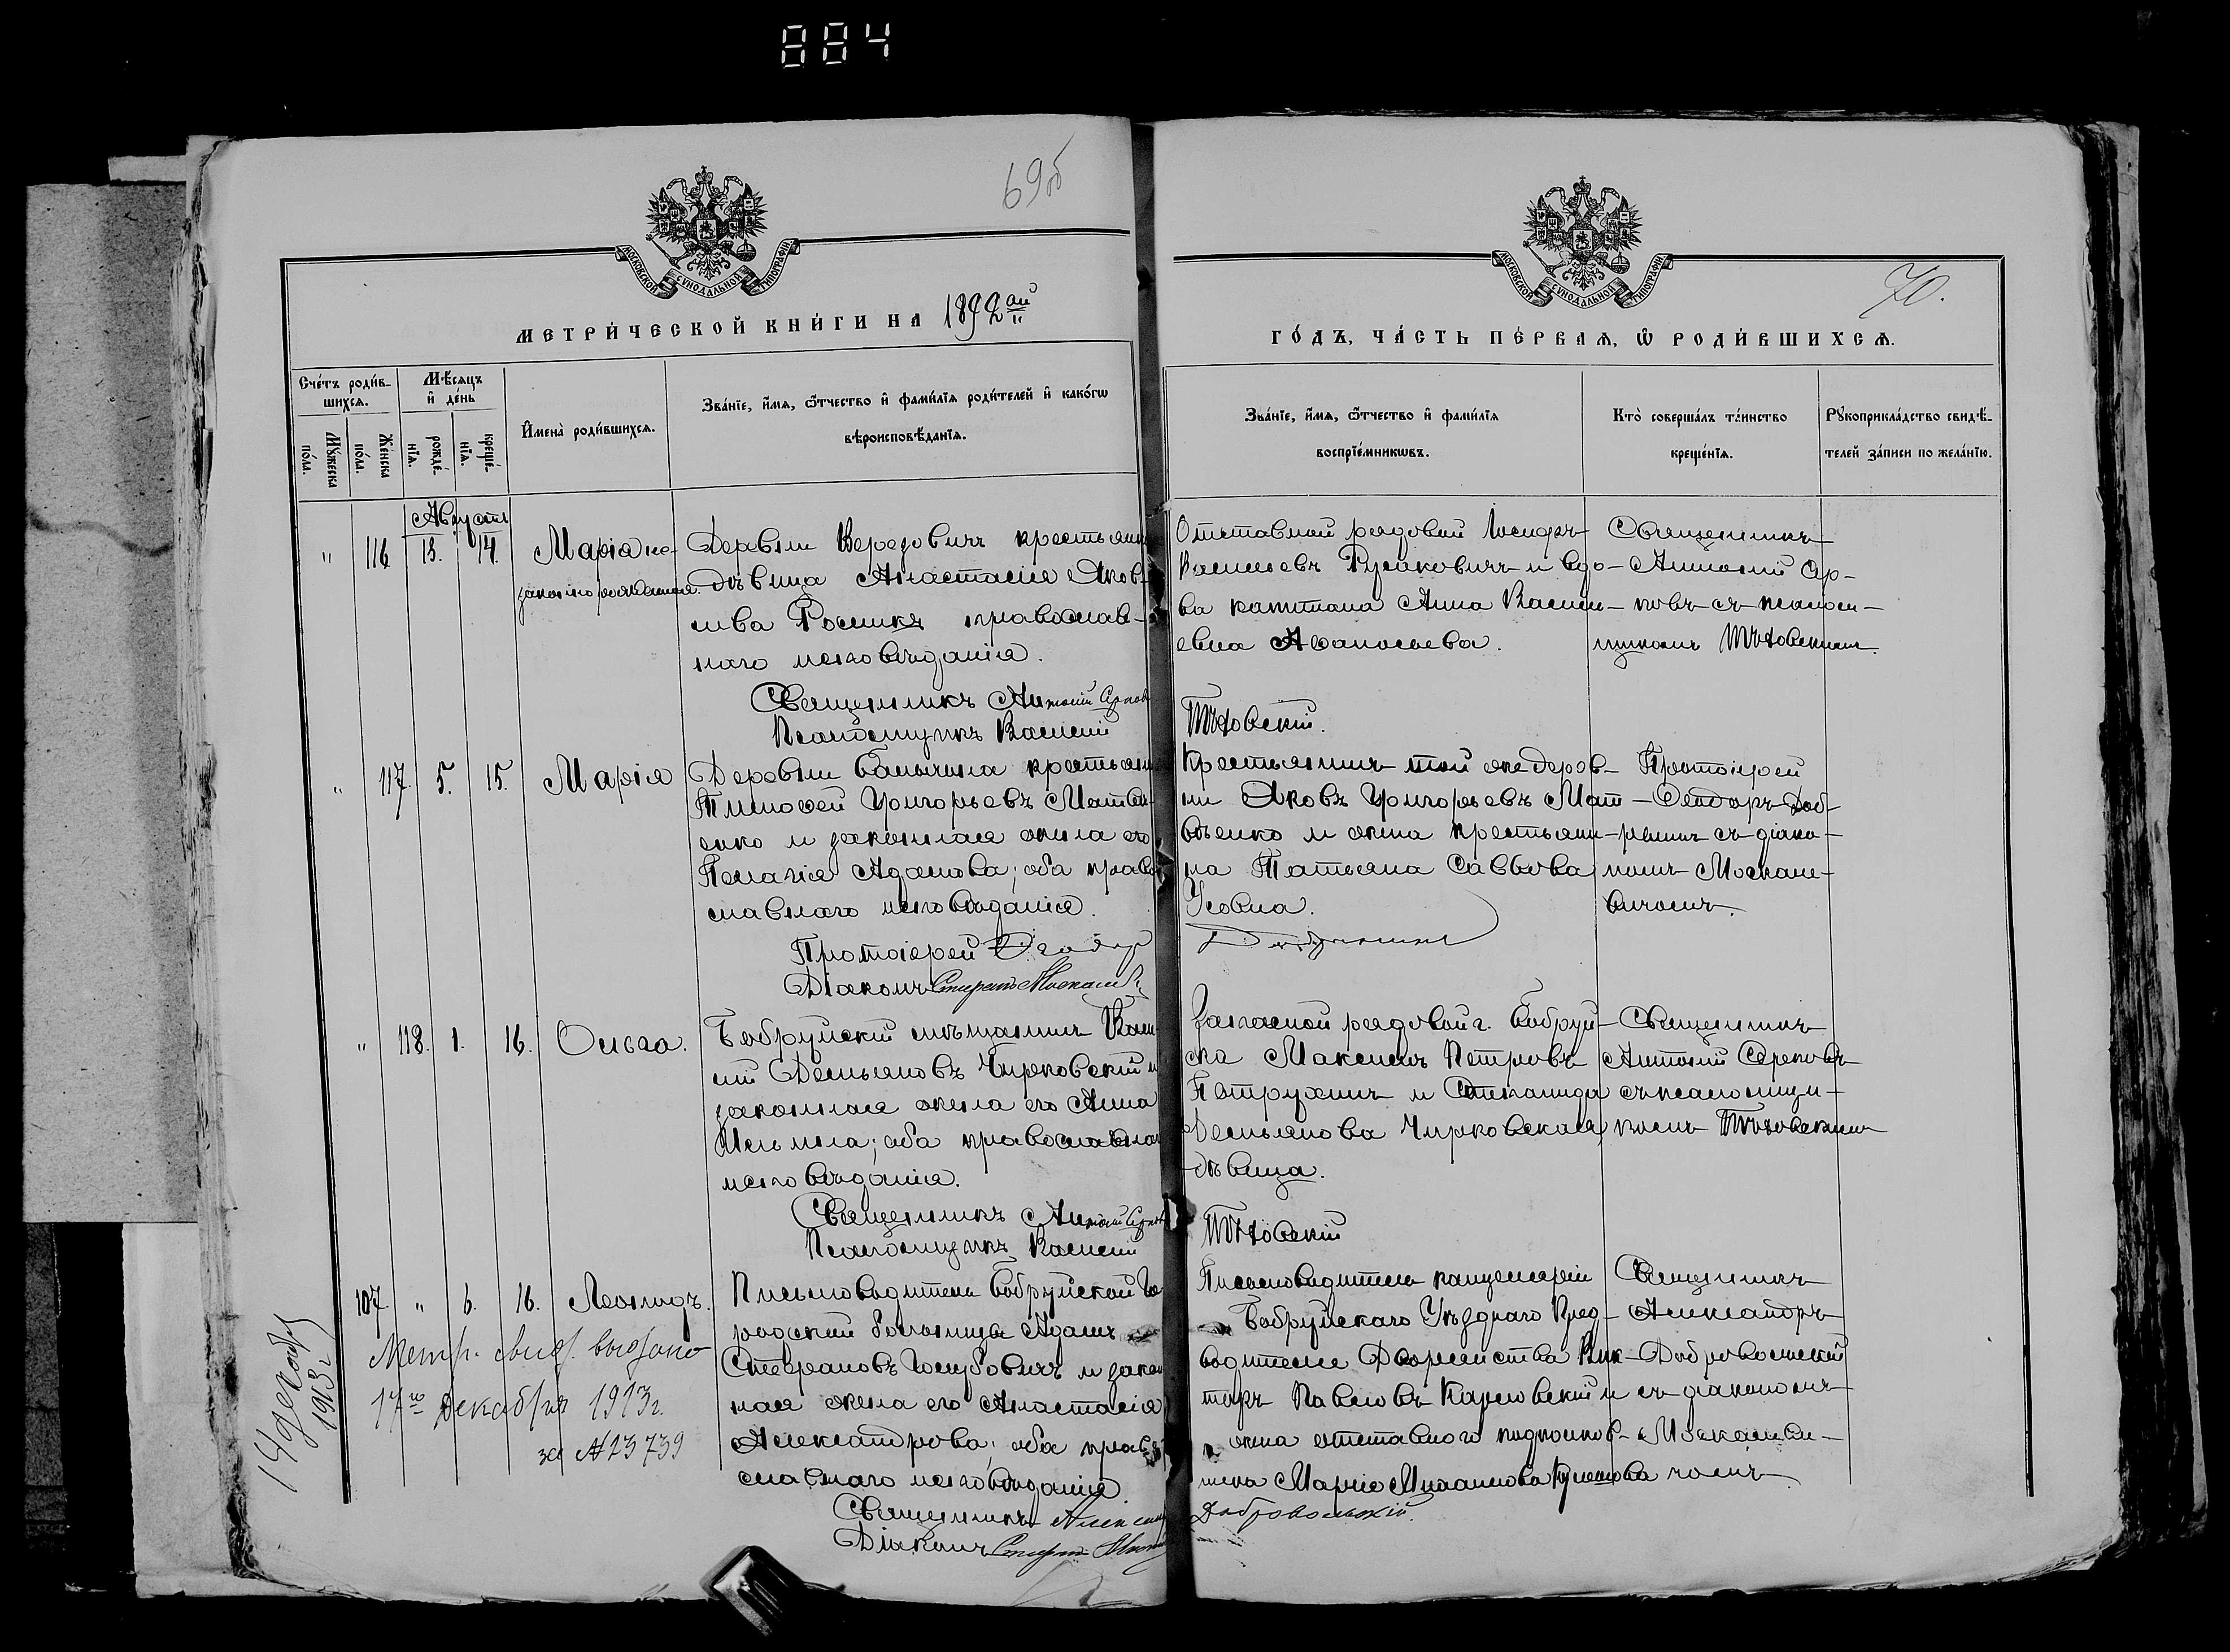 884
69об
70.
МОСКОВСКОЙ СѴНОДАЛЬНОЙ ТИПОГРАФІИ
МОСКОВСКОЙ СѴНОДАЛЬНОЙ ТИПОГРАФІИ
МЕТРИ́ЧЕСКОЙ КНИ́ГИ НА 1892ой
ГО́ДЪ, ЧА́СТЬ ПЕ́РВАѦ, Ѡ РОДИ́ВШИХСѦ.
Сче́тъ роди́в-
шихсѧ.
Мꙋ́жеска по́ла.
Же́нска по́ла.
Мѣ́сяцъ и де́нь
рожде́-нїѧ.
креще́-нїѧ.
Имена̀ роди́вшихсѧ.
Зва́нїе, и́мѧ, ѻ́тчество и фами́лїѧ роди́телей и како́гѡ
вѣроисповѣ́данїѧ.
Зва́нїе, и́мѧ, ѻ́тчество и фами́лїѧ
воспрїе́мникѡвъ.
Кто̀ соверша́лъ та́инство
креще́нїѧ.
Рꙋкоприкла́дство свидѣ́-
телей за́писи по жела́нїю.
Августъ
" 116 13. 14. Марія не-
законнорожденная.
Деревни Вередовичъ крестьянка
дѣвица Анастасія Яков-
лева православ-
наго исповѣданія.
Священникъ Антоній
Псаломщикъ Василій
Отставной рядовой Іосифъ
Васильевъ Русаковичъ и вдо-
ва капитана Анна Василь-
евна Аѳанасьева.
Священникъ
Антоній Сер-
ковъ съ псалом-
щикомъ Тѣховскимъ.
Тѣховскій.
" 117 5. 15. Марія
Деревни крестьянинъ
Тимоѳей Григорьевъ Матвѣ-
енко и законная жена его
Пелагія Адамова; оба право-
славнаго исповѣданія.
Протоіерей Ѳеодоръ
Діаконъ Спиридонъ
Крестьянинъ той же дерев-
ни Яковъ Григорьевъ Мат-
вѣенко и жена крестьяни-
на Татьяна Саввова
Усовна.
Протоіерей
Ѳеодоръ
съ діако-
номъ Москале-
вичомъ.
" 118. 1. 16. Ольга.
Бобруйскій мѣщанинъ Васи-
лій Демьяновъ Чирковскій и
законная жена его Анна
Ильина; оба православнаго
исповѣданія.
Священникъ Антоній
Псаломщикъ Василій
Запасной рядовой г. Бобруй-
ска Максимъ Петровъ
Петрухинъ и Степанида
Демьянова Чирковская
дѣвица.
Священникъ
Антоній Серковъ
съ псаломщи-
комъ Тѣховскимъ
Тѣховскій
107. " 6. 16. Леонидъ.
Письмоводитель Бобруйской Го-
родской больницы Адамъ
Стефановъ Голубовичъ и закон-
ная жена его Анастасія
Александрова; оба право-
славнаго исповѣданія.
Священникъ Александръ
Діаконъ Спиридонъ
Письмоводитель канцеляріи
Бобруйскаго Уѣзднаго Пред-
водителя Дворянства Вик-
торъ Павловъ Карловскій и
жена отставного подполков-
ника Марія Михаилова
Священникъ
Александръ
Добровольскій
съ діакономъ
Москалеви-
чомъ
Добровольскій.
Метр. свид. выдано
17го декабря 1913г.
за №23739
14 декабря
1913 г.